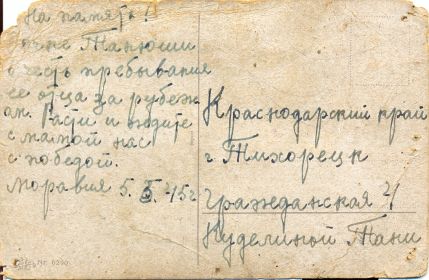 На память!
Танюши
в честь пребывания
ее отца за рубеж
ом. Расти и ждите
с мамой нас
с победой.
Моравия 5. 5. 45г
Краснодарский край
г. Тихорецк
Гражданская 4
Куделиной Тани